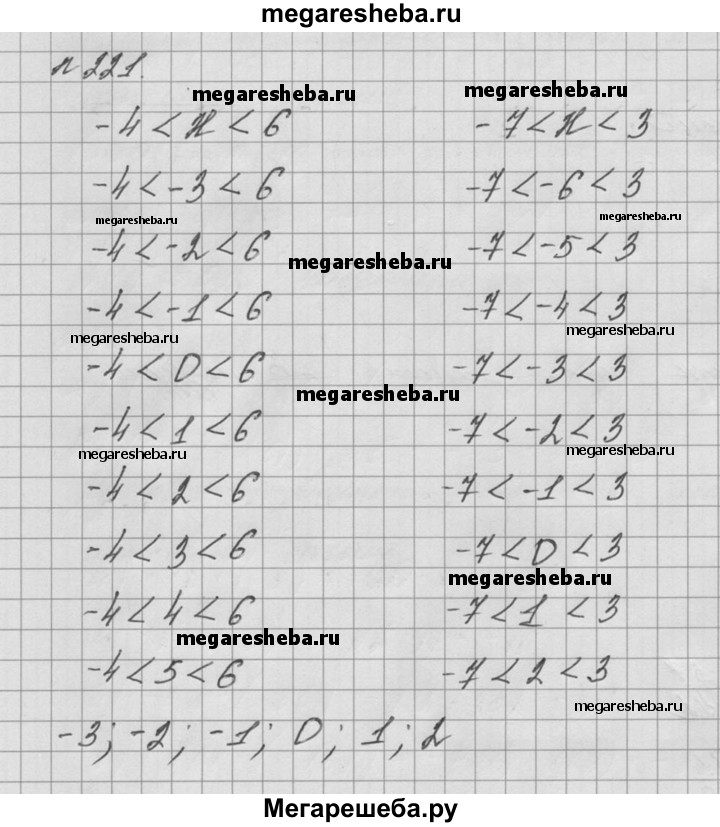 megaresheba.ru
№221.
megaresheba.ru megaresheba.ru
-4 < x < 6 -7 < x < 3
-4 < -3 < 6 -7 < -6 < 3
megaresheba.ru megaresheba.ru
-4 < -2 < 6 -7 < -5 < 3
megaresheba.ru
-4 < -1 < 6 -7 < -4 < 3
megaresheba.ru megaresheba.ru
-4 < 0 < 6 -7 < -3 < 3
megaresheba.ru
-4 < 1 < 6 -7 < -2 < 3
megaresheba.ru megaresheba.ru
-4 < 2 < 6 -7 < -1 < 3
-4 < 3 < 6 -7 < 0 < 3
megaresheba.ru
-4 < 4 < 6 -7 < 1 < 3
megaresheba.ru
-4 < 5 < 6 -7 < 2 < 3
megaresheba.ru
-3; -2; -1; 0; 1; 2
Мегарешеба.ру